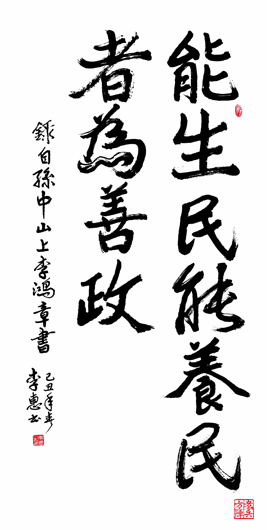 能生民能養民
者為善政
錄自孫中山上李鴻章書
己丑年春
李惠书